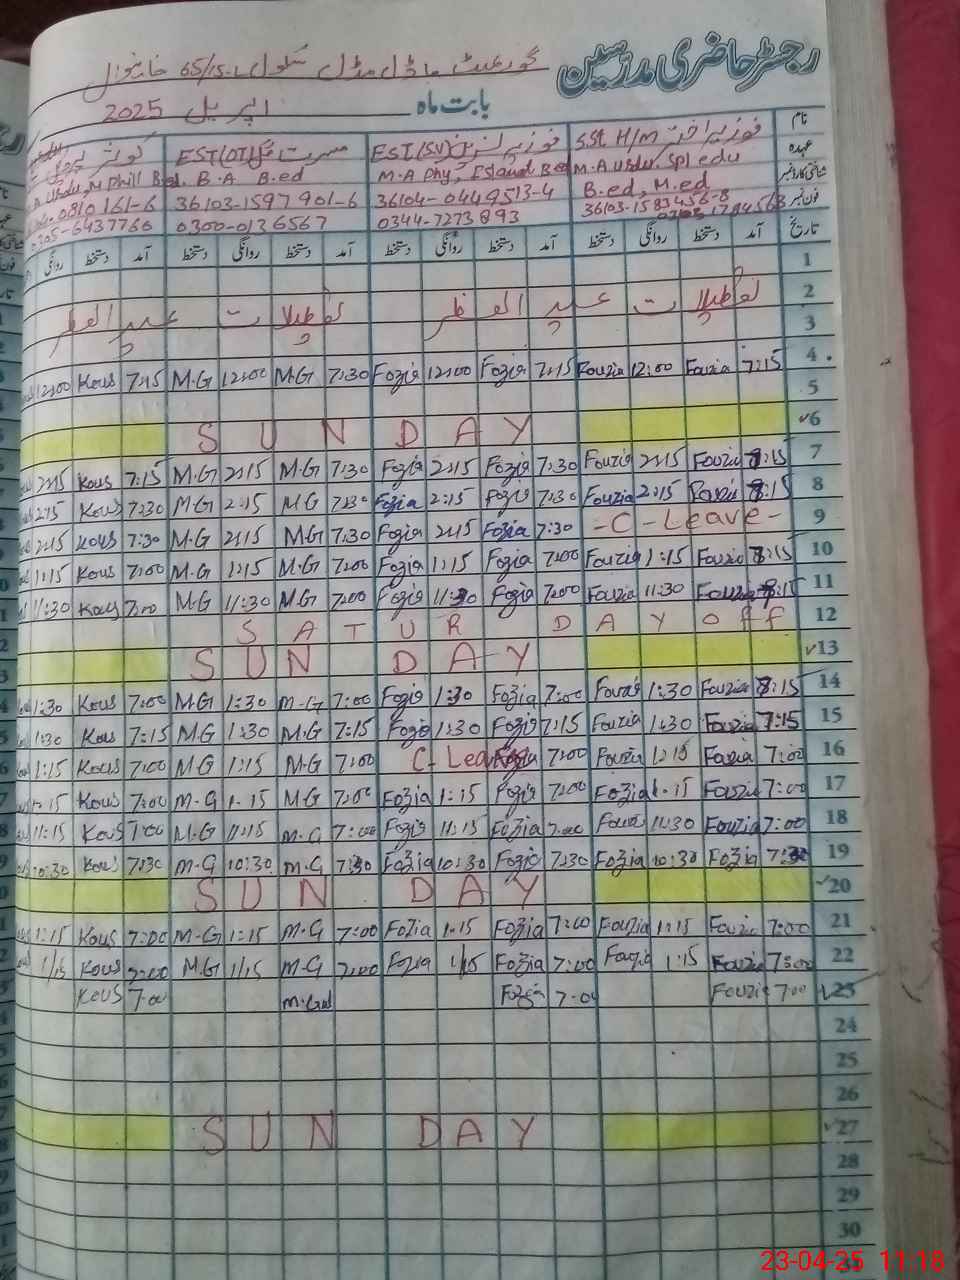 رجسٹر حاضری مدرسین گورنمنٹ ماڈل مڈل سکول 65/15-L خانیوال
بابت ماہ اپریل 2025
نام فوزیہ اختر SST H/M فوزیہ EST (SV) مسرت EST (OT) کوثر
عہدہ M.A Urdu, Spl edu M.A Phy, B.ed B.A B.ed Urdu, M Phill B.ed
B.ed, M.ed
36103-1583456-8 36104-0449513-4 36103-1597901-6 0810161-6
فون نمبر 0344-7273893 0300-0136567 0305-6437766
تاریخ آمد دستخط روانگی دستخط آمد دستخط روانگی دستخط آمد دستخط روانگی دستخط آمد دستخط روانگی
1
2
تعطیلات عید الفطر تعطیلات عید الفطر
3
12:00 Kous 7:15 M.G 12:00 M.G 7:30 Fozia 12:00 Fozia 7:15 Fouzia 12:00 Fouzia 7:15 4
5
S U N D A Y 6
2:15 Kous 7:15 M.G 2:15 M.G 7:30 Fozia 2:15 Fozia 7:30 Fouzia 2:15 Fouzia 8:15 7
2:15 Kous 7:30 M.G 2:15 M.G 7:30 Fozia 2:15 Fozia 7:30 Fouzia 2:15 Fouzia 8:15 8
2:15 Kous 7:30 M.G 2:15 M.G 7:30 Fozia 2:15 Fozia 7:30 -C-Leave- 9
1:15 Kous 7:00 M.G 1:15 M.G 7:00 Fozia 1:15 Fozia 7:00 Fouzia 1:15 Fouzia 8:15 10
11:30 Kous 7:00 M.G 11:30 M.G 7:00 Fozia 11:30 Fozia 7:00 Fouzia 11:30 Fouzia 8:15 11
S A T U R D A Y O F F 12
S U N D A Y 13
1:30 Kous 7:00 M.G 1:30 M.G 7:00 Fozia 1:30 Fozia 7:00 Fouzia 1:30 Fouzia 8:15 14
1:30 Kous 7:15 M.G 1:30 M.G 7:15 Fozia 1:30 Fozia 7:15 Fouzia 1:30 Fouzia 7:15 15
1:15 Kous 7:00 M.G 1:15 M.G 7:00 C-Leave Fozia 7:00 Fouzia 1:15 Fouzia 7:00 16
1:15 Kous 7:00 M.G 1:15 M.G 7:00 Fozia 1:15 Fozia 7:00 Fozia 1:15 Fouzia 7:00 17
11:15 Kous 7:00 M.G 11:15 M.G 7:00 Fozia 11:15 Fozia 7:00 Fouzia 11:30 Fouzia 7:00 18
10:30 Kous 7:30 M.G 10:30 M.G 7:30 Fozia 10:30 Fozia 7:30 Fozia 10:30 Fozia 7:30 19
S U N D A Y 20
1:15 Kous 7:00 M.G 1:15 M.G 7:00 Fozia 1:15 Fozia 7:00 Fouzia 1:15 Fouzia 7:00 21
1/15 Kous 7:00 M.G 1/15 M.G 7:00 Fozia 1/15 Fozia 7:00 Fouzia 1:15 Fouzia 7:00 22
Kous 7:00 M.Gul Fozia 7:00 Fouzia 7:00 23
24
25
26
S U N D A Y 27
28
29
30
23-04-25 11:18